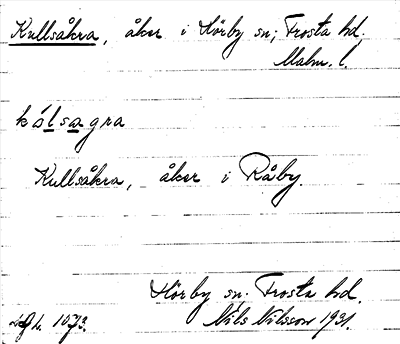 Kullsåkra, åker i Hörby sn, Frosta hd.
Malm. l.
kólsagra
Kullsåkra, åker i Råby.
Hörby sn. Frosta hd.
Nils Nilsson 1931.